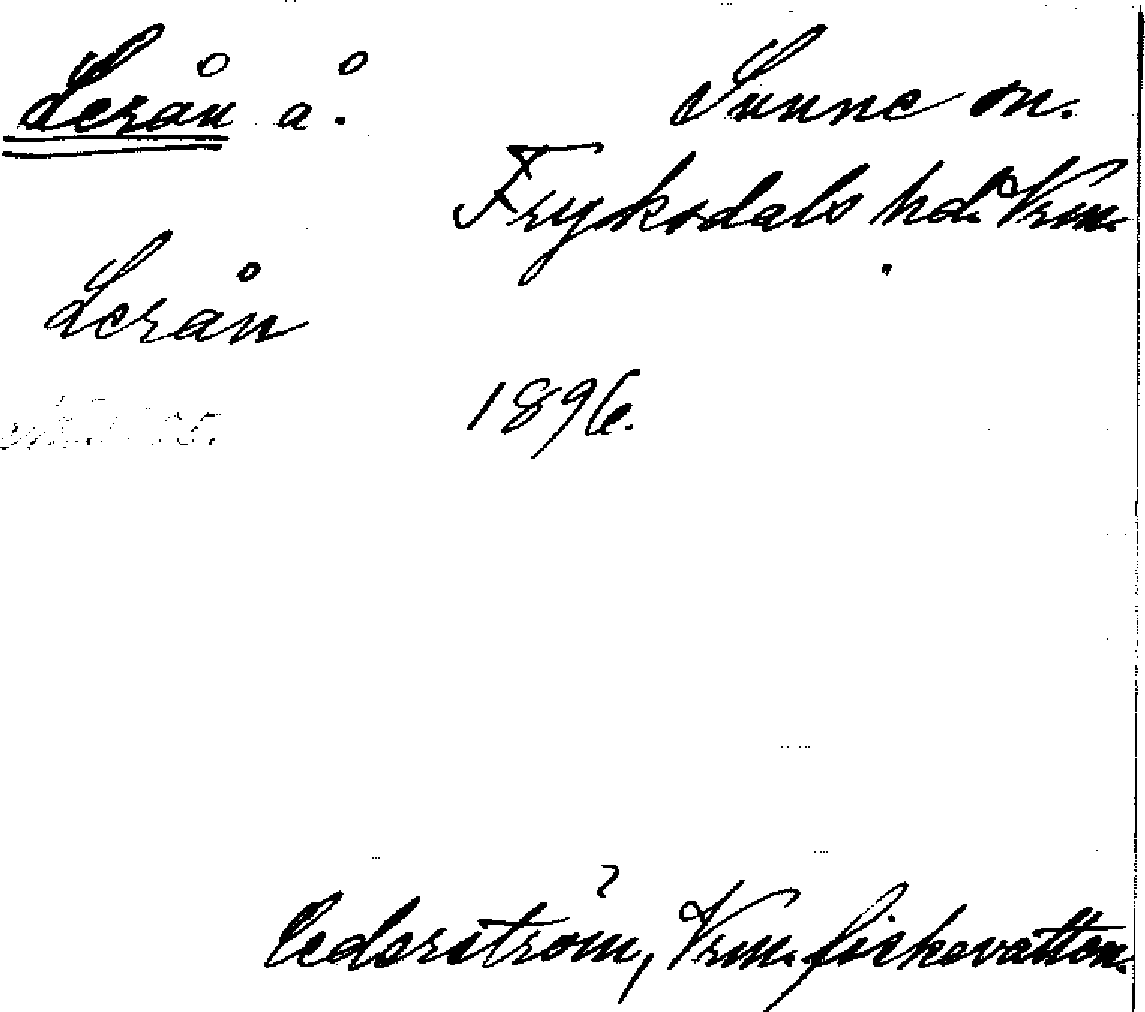 Lerån å. Sunne sn.
Fryksdals hd. Vrm.
Lerån
1896.
Cederström, Vrm. fiskevatten.